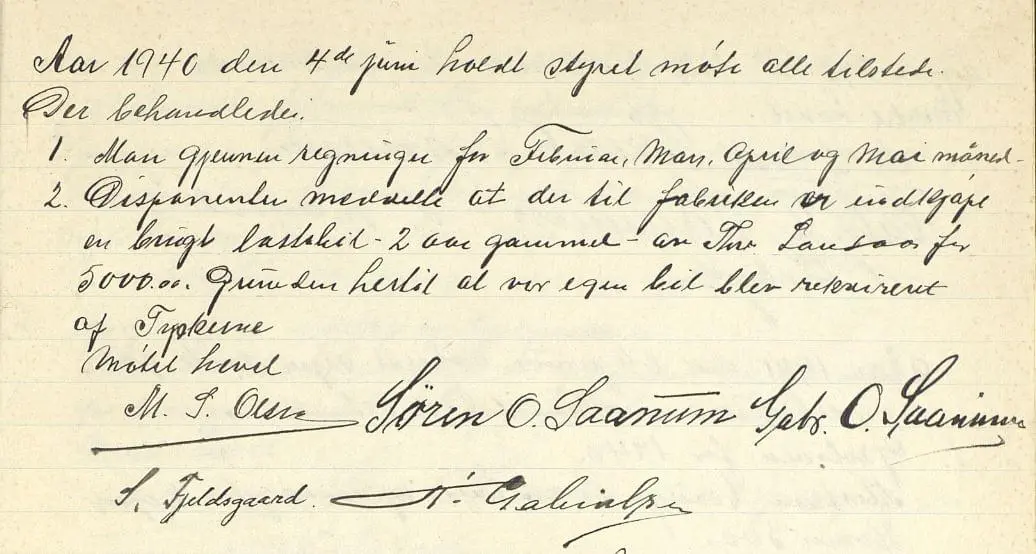 Aar 1940 den 4de juni holdt styret møte alle tilstede.
Der behandledes.
1. Man gjennem regninger for Februar, Mars, April og Mai måned.
2. Disponenten medelte at der til fabriken er indkjøpt
en brugt lastebil - 2 aar gammel - av Thv. for
5000.00. Grunden hertil at vor egen bil blev rekvireret
af Tyskerne
Møtet hevet
M. S. Olsen Søren O. Saanum Gabr. O. Saanum
S. Fjeldsgaard. Gabrielsen